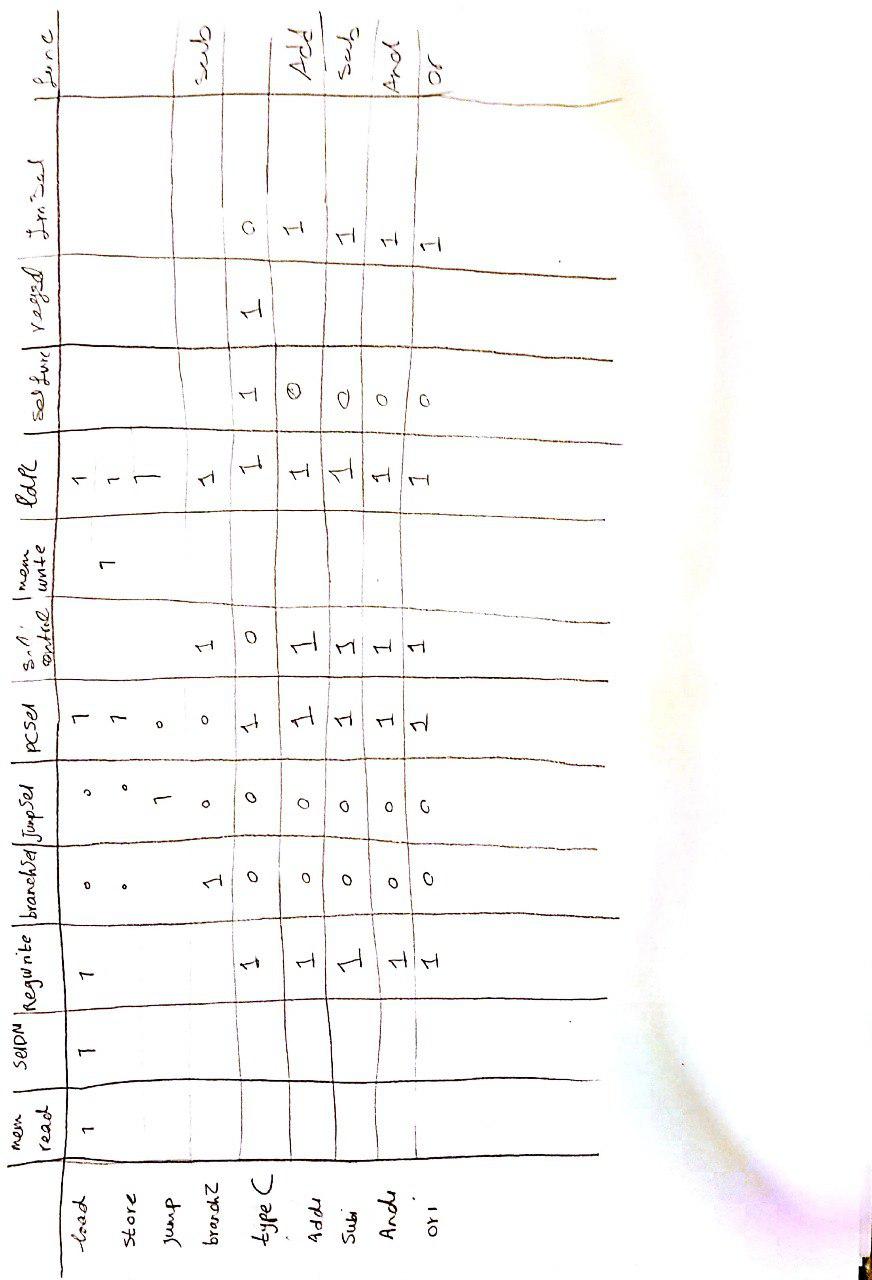 mem read | SelDM | Regwrite | branchSel | JumpSel | PCSel | control | mem write | ldPC | Selfunc | | ImSel | func
load 1 1 1 0 0 1 1
store 0 0 1 1 1
Jump 1 0 1
branchZ 1 0 0 1 1 Sub
type C 1 0 0 1 0 1 1 1 0
Addi 1 0 0 1 1 1 0 1 Add
Subi 1 0 0 1 1 1 0 1 Sub
Andi 1 0 0 1 1 1 0 1 And
ori 1 0 0 1 1 1 0 1 or